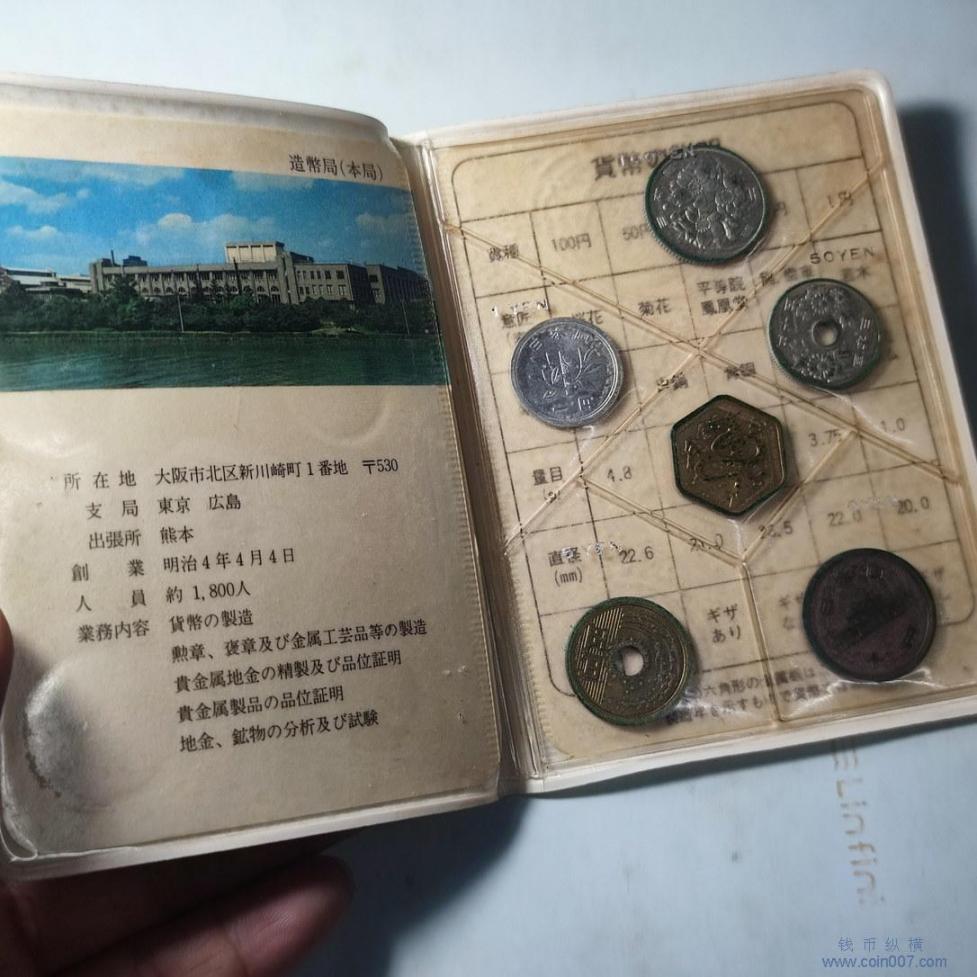 造幣局(本局)
所在地 大阪市北区新川崎町1番地 〒530
支局 東京 広島
出張所 熊本
創業 明治4年4月4日
人員 約1,800人
業務内容 貨幣の製造
勲章、褒章及び金属工芸品等の製造
貴金属地金の精製及び品位証明
貴金属製品の品位証明
地金、鉱物の分析及び試験
貨幣の
100円 50円 1円
50YEN
菊花 平等院鳳凰堂
量目(g) 4.8 3.75 1.0
直径(mm) 22.6 21.0 22.0 20.0
ギザあり
六角形の
ELinfini
钱币纵横
www.coin007.com